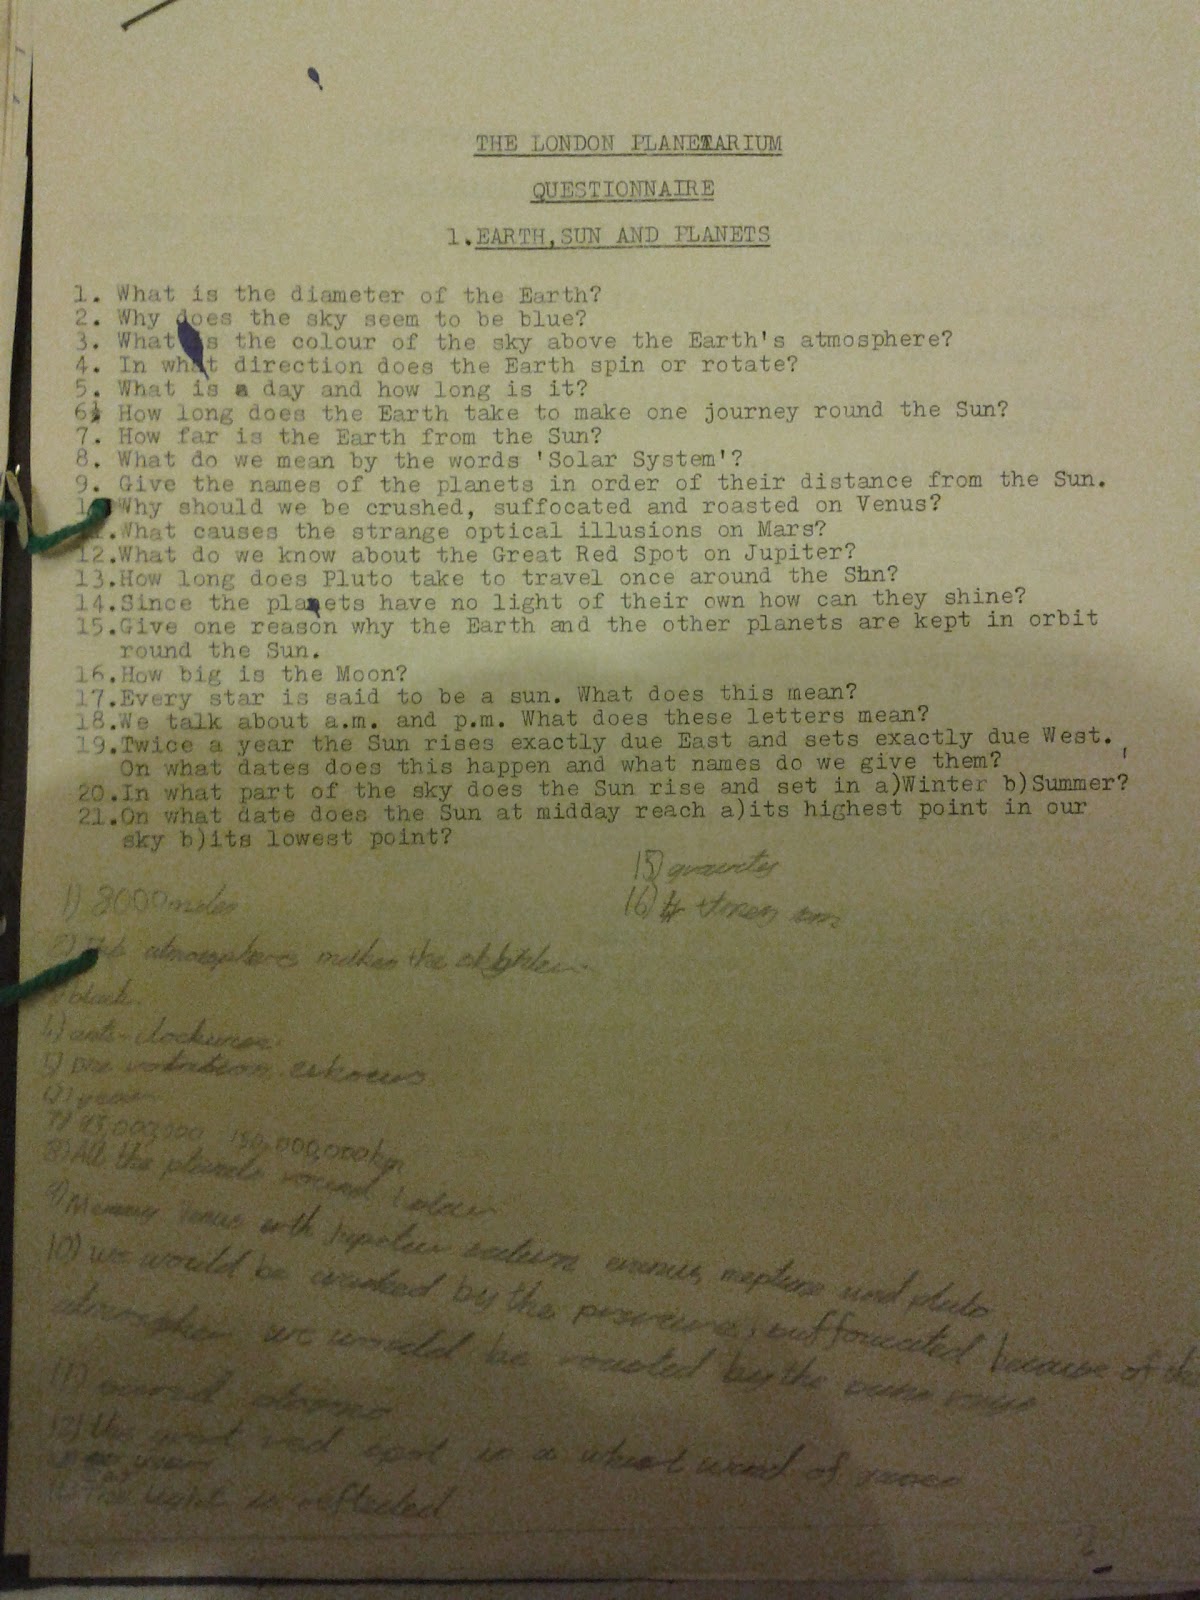 THE LONDON PLANETARIUM
QUESTIONNAIRE
1.EARTH,SUN AND PLANETS
1. What is the diameter of the Earth?
2. Why does the sky seem to be blue?
3. What is the colour of the sky above the Earth's atmosphere?
4. In what direction does the Earth spin or rotate?
5. What is a day and how long is it?
6. How long does the Earth take to make one journey round the Sun?
7. How far is the Earth from the Sun?
8. What do we mean by the words 'Solar System'?
9. Give the names of the planets in order of their distance from the Sun.
Why should we be crushed, suffocated and roasted on Venus?
What causes the strange optical illusions on Mars?
12.What do we know about the Great Red Spot on Jupiter?
13.How long does Pluto take to travel once around the Sun?
14.Since the planets have no light of their own how can they shine?
15.Give one reason why the Earth and the other planets are kept in orbit
round the Sun.
16.How big is the Moon?
17.Every star is said to be a sun. What does this mean?
18.We talk about a.m. and p.m. What does these letters mean?
19.Twice a year the Sun rises exactly due East and sets exactly due West.
On what dates does this happen and what names do we give them?
20.In what part of the sky does the Sun rise and set in a)Winter b)Summer?
21.On what date does the Sun at midday reach a)its highest point in our
sky b)its lowest point?
15) gravity
16)
1) 8000 miles
atmosphere makes the
black.
4) anti-clockwise
5) one rotation
year
7) 93,000,000 150,000,000km
8) All the planets round
9) Venus erth saturn neptune and pluto
10) we would be by the suffocated because of the
we would be roasted by the
11)
12) the red spot is a wind of
14) The light is reflected